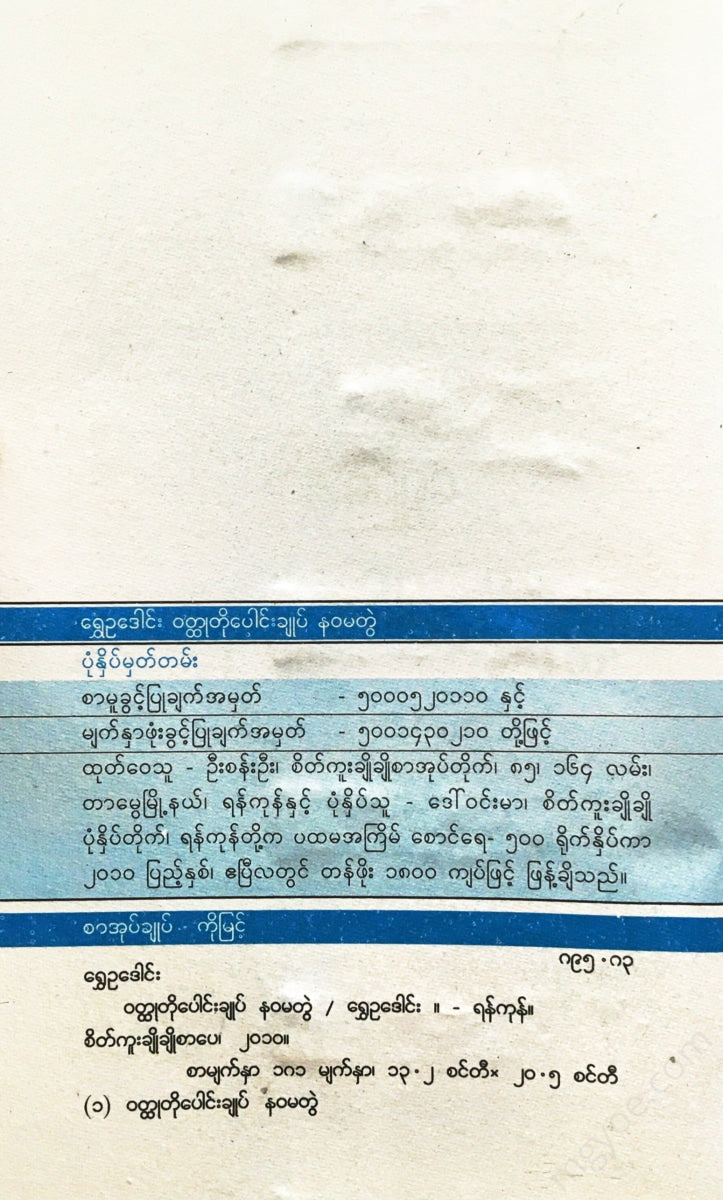 ရွှေဥဒေါင်း ဝတ္ထုတိုပေါင်းချုပ် နဝမတွဲ
ပုံနှိပ်မှတ်တမ်း
စာမူခွင့်ပြုချက်အမှတ် - ၅၀၀၀၅၂၀၁၁၀ နှင့်
မျက်နှာဖုံးခွင့်ပြုချက်အမှတ် - ၅၀၀၁၄၃၀၂၁၀ တို့ဖြင့်
ထုတ်ဝေသူ - ဦးစန်းဦး၊ စိတ်ကူးချိုချိုစာအုပ်တိုက်၊ ၈၅၊ ၁၆၄ လမ်း၊
တာမွေမြို့နယ်၊ ရန်ကုန်နှင့် ပုံနှိပ်သူ - ဒေါ်ဝင်းမာ၊ စိတ်ကူးချိုချို
ပုံနှိပ်တိုက်၊ ရန်ကုန်တို့က ပထမအကြိမ် စောင်ရေ- ၅၀၀ ရိုက်နှိပ်ကာ
၂၀၁၀ ပြည့်နှစ်၊ ဧပြီလတွင် တန်ဖိုး ၁၈၀၀ ကျပ်ဖြင့် ဖြန့်ချိသည်။
စာအုပ်ချုပ် - ကိုမြင့်
၈၉၅.၈၃
ရွှေဥဒေါင်း
ဝတ္ထုတိုပေါင်းချုပ် နဝမတွဲ / ရွှေဥဒေါင်း ။ - ရန်ကုန်။
စိတ်ကူးချိုချိုစာပေ၊ ၂၀၁၀။
စာမျက်နှာ ၁၈၁ မျက်နှာ၊ ၁၃.၂ စင်တီ× ၂၀.၅ စင်တီ
(၁) ဝတ္ထုတိုပေါင်းချုပ် နဝမတွဲ
mgyoe.com